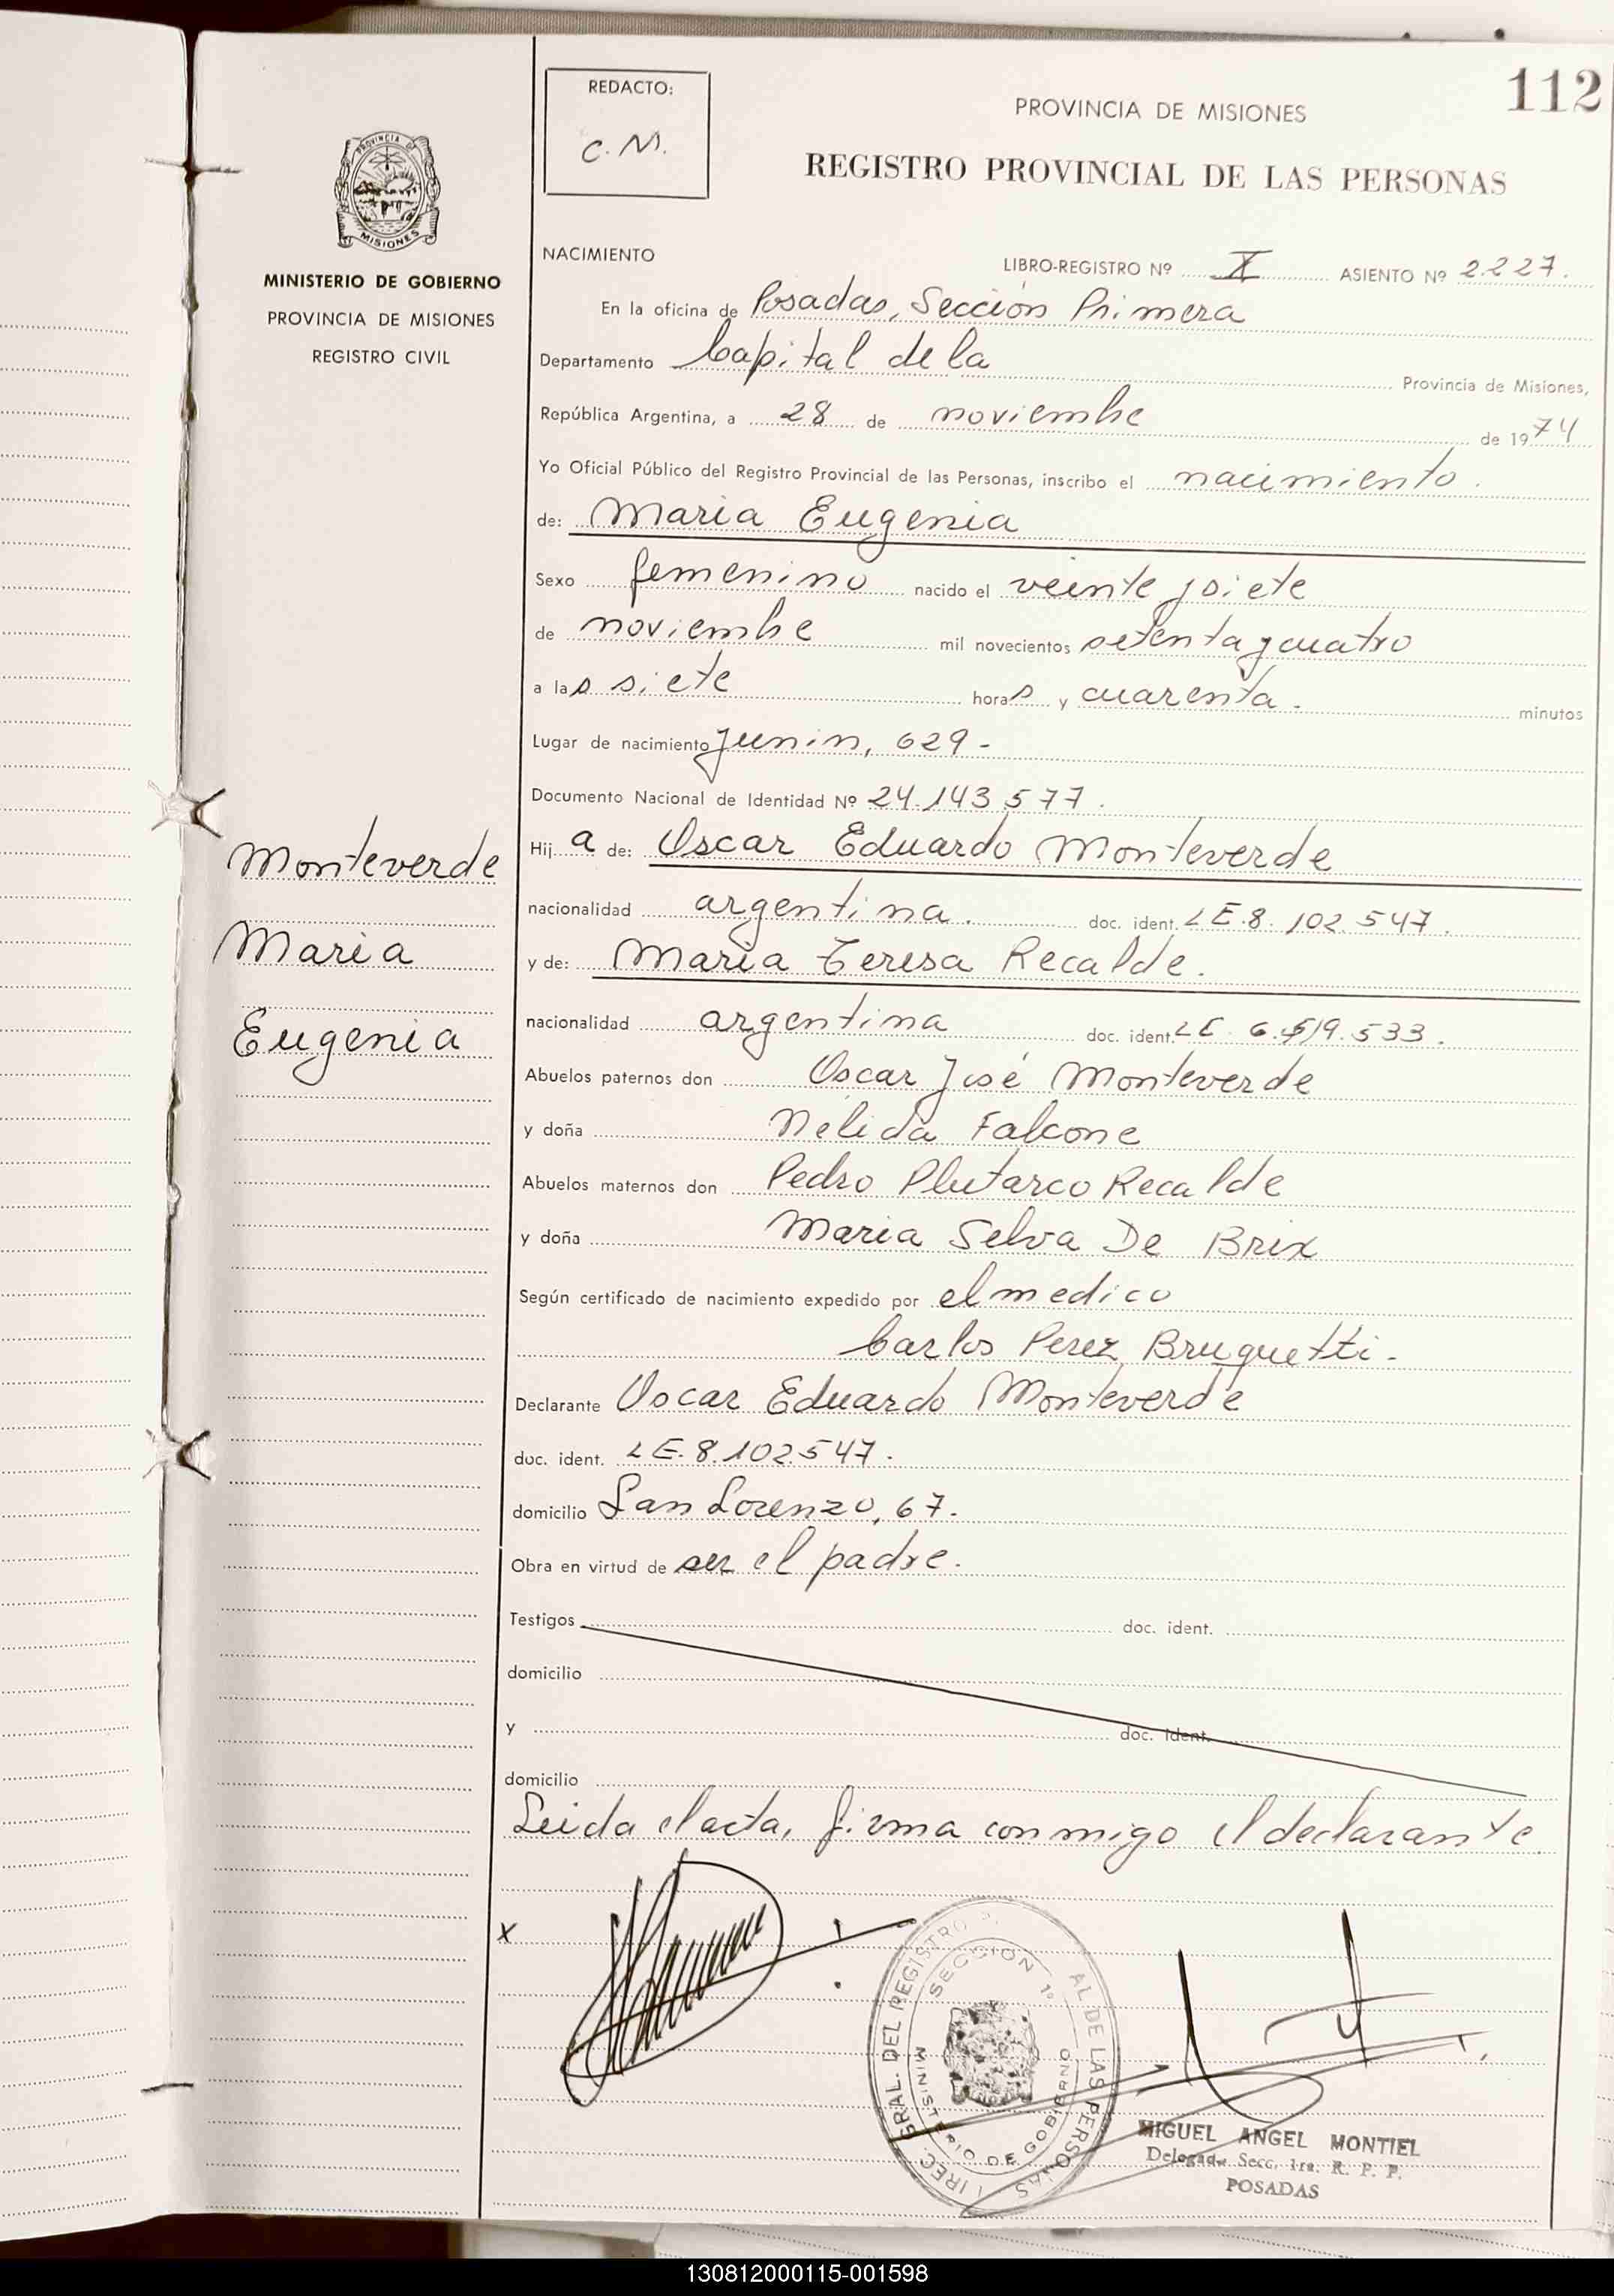 112
REDACTO:
C.M.
PROVINCIA DE MISIONES
REGISTRO PROVINCIAL DE LAS PERSONAS
PROVINCIA DE
MISIONES
MINISTERIO DE GOBIERNO
PROVINCIA DE MISIONES
REGISTRO CIVIL
NACIMIENTO
LIBRO-REGISTRO Nº X ASIENTO Nº 2.227.
En la oficina de Posadas, Sección Primera
Departamento Capital de la Provincia de Misiones,
República Argentina, a 28 de noviembre de 1974
Yo Oficial Público del Registro Provincial de las Personas, inscribo el nacimiento.
de: Maria Eugenia
Sexo femenino nacido el veinte y siete
de noviembre mil novecientos setenta y cuatro
a las siete horas y cuarenta. minutos
Lugar de nacimiento Junin, 629-
Documento Nacional de Identidad Nº 24.143.577.
Monteverde
Maria
Eugenia
Hij a de: Oscar Eduardo Monteverde
nacionalidad argentina. doc. ident. LE.8.102.547.
y de: Maria Teresa Recalde.
nacionalidad argentina doc. ident. LE 6.519.533.
Abuelos paternos don Oscar José Monteverde
y doña Nelida Falcone
Abuelos maternos don Pedro Plutarco Recalde
y doña Maria Selva De Brix
Según certificado de nacimiento expedido por el medico
Carlos Perez Bruquetti.
Declarante Oscar Eduardo Monteverde
doc. ident. LE.8.102.547.
domicilio San Lorenzo, 67.
Obra en virtud de ser el padre.
Testigos doc. ident.
domicilio
y doc. ident.
domicilio
Leida el acta, firma conmigo el declarante.
X
SECCION 1º
MINISTERIO DE GOBIERNO
MIGUEL ANGEL MONTIEL
Delegado Secc. 1ra. R. P. P.
POSADAS
130812000115-001598